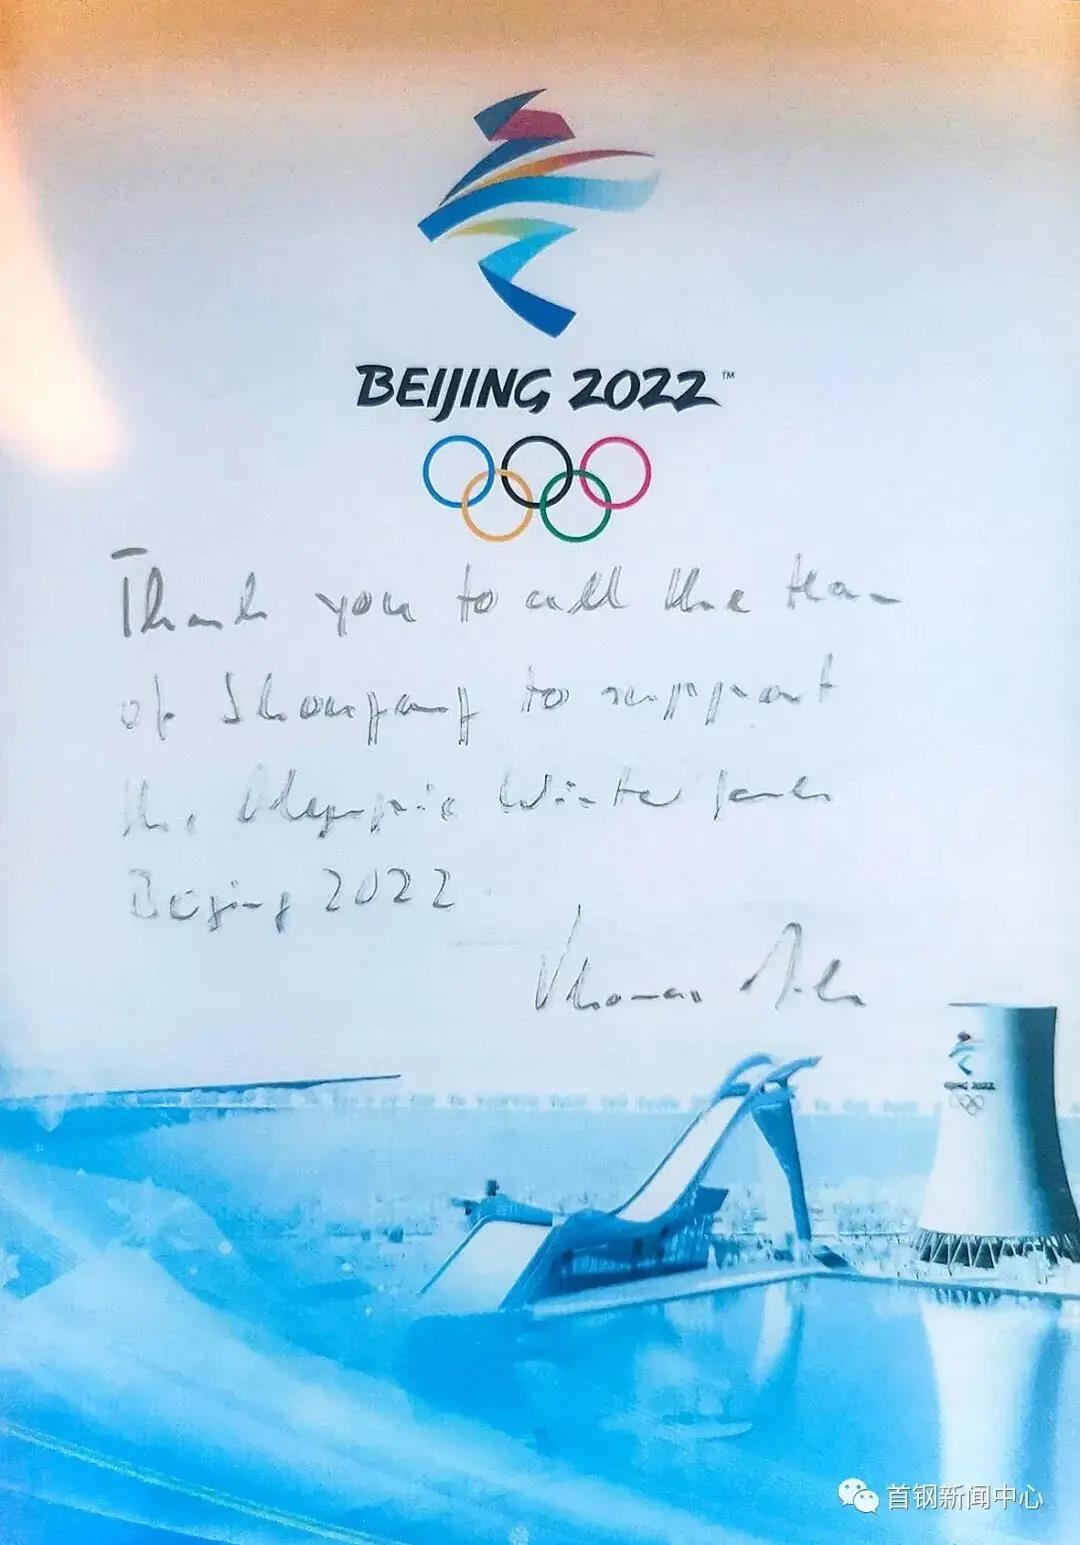 BEIJING 2022™
Thank you to all the team
of Shougang to support
the Olympic Winter Games
Beijing 2022
Thomas Bach
BEIJING 2022
首钢新闻中心